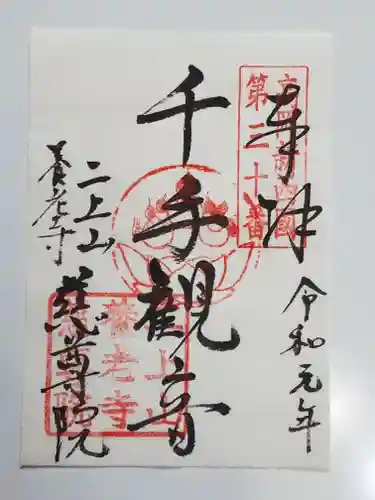 奉拝
第二十番
令和元年
千手観音
二上山
養老寺
慈尊院
二上山
養老寺